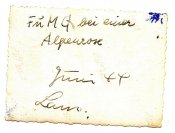 Fü M Q bei einer
Alpenrose
Juni 44